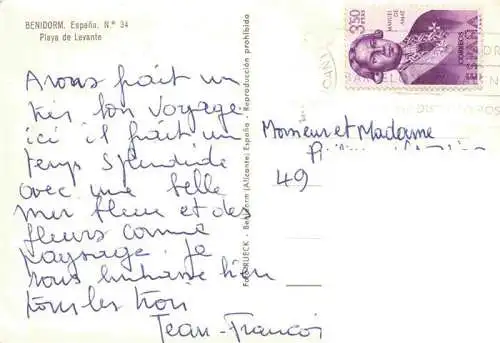 BENIDORM. España. N.º 34
Playa de Levante
Avons fait un
très bon voyage.
ici il fait un
temps splendide
avec une belle
mer bleue et des
fleurs comme
paysage. Je
vous embrasse bien
tous les trois
Jean-Francois
Foto RUECK - Benidorm (Alicante) España - Reproducción prohibida
3'50
PTAS
MANUEL DE AMAT
CORREOS
ESPAÑA
Monsieur et Madame
49